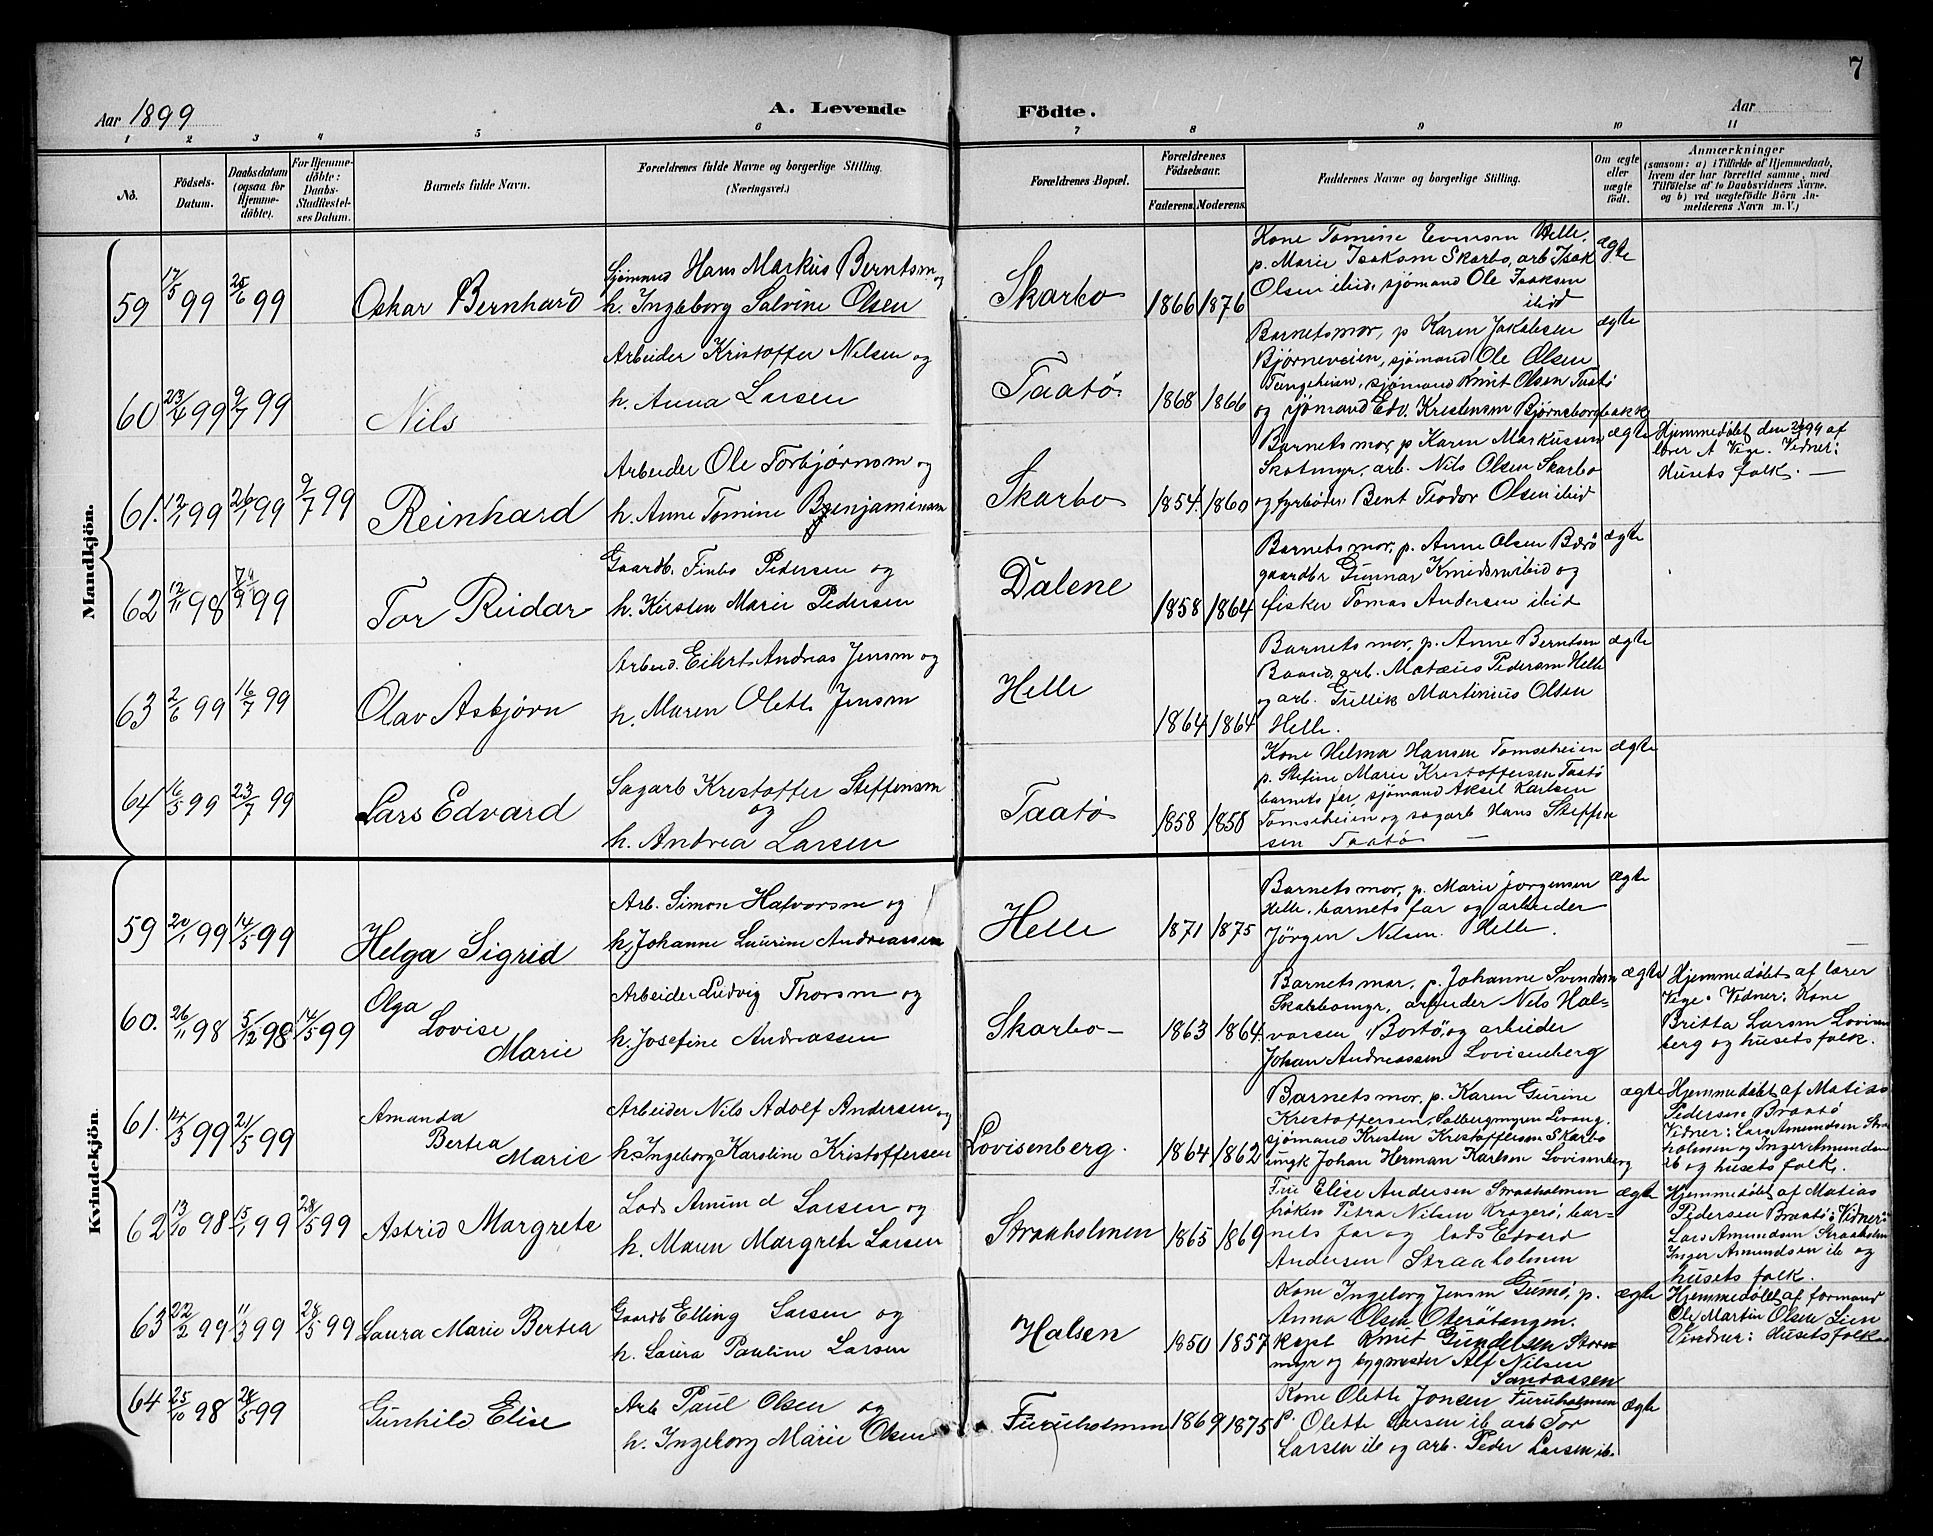 7
Aar 1899
A. Levende
Födte.
Aar
1 2 3 4 5 6 7 8 9 10 11
No.
Födsels-Datum.
Daabsdatum (ogsaa for Hjemme-döbte).
For Hjemme-döbte: Daabs-Stadfæstel-ses Datum.
Barnets fulde Navn.
Forældrenes fulde Navne og borgerlige Stilling. (Næringsvei.)
Forældrenes Bopæl.
Forældrenes Födselsaar.
Faderens. Moderens.
Faddernes Navne og borgerlige Stilling.
Om ægte eller uægte födt.
Anmærkninger
(saasom: a) i Tilfælde af Hjemmedaab, hvem der har forrettet samme, med Tilföielse af to Daabsvidners Navne, og b) ved uægtefödte Börn Anmelderens Navn m. V.)
Mandkjön.
59 17/5 99 25/6 99 Oskar Bernhard
Sjømand Hans Markus Berntsen og
h. Ingeborg Salvine Olsen
Skarbo 1866 1876
Kone Tomine Helle,
p. Marie Isaksen Skarbo, arb. Isak
Olsen ibid, sjømand Ole Isaksen
ibid
ægte
60 23/4 99 9/7 99 Nils
Arbeider Kristoffer Nilsen og
h. Anna Larsen
Taatø 1868 1866
Barnets mor, p Karen Jakobsen
Bjørneveien, sjömand Ole Olsen
Tangeheien, sjømand Knut Olsen Taatø
og sjömand Edv. Kristensen Bjørneborgbakk
ægte
61. 12/1 99 26/1 99 9/7 99 Reinhard
Arbeider Ole Torbjørnsen og
h. Anne Tomine Benjaminsen
Skarbo 1854 1860
Barnets mor, p Karen Markussen
Skotmyr, arb. Nils Olsen Skarbo
og fyrbøder Bent Teodor Olsen ibid
ægte
Hjemmedøbt den 99 af
lærer A Vige. Vidner:
Husets folk. —
62 12/11 98 99 Tor Reidar
Gaardb. Pedersen og
h. Kirsten Marie Pedersen
Dalene 1858 1864
Barnets mor, p. Anne Olsen Bærø
gaardbr Gunnar Knudsen ibid og
fisker Tomas Andersen ibid
ægte
63 2/6 99 16/7 99 Olav Asbjørn
Arbeid. Eilert Andreas Jensen og
h. Maren Olette Jensen
Helle 1864 1864
Barnets mor, p. Anne Berntsen
arb. Matæus Pedersen Helle
og arb. Gullik Martinius Olsen
Helle.
ægte
64 16/5 99 23/7 99 Lars Edvard
Sagarb Kristoffer Steffensen
og
h. Andrea Larsen
Taatø 1858 1858
Kone Helma Hansen Tomseheien
p. Stefine Marie Kristoffersen Taatø
barnets far, sjømand Aksel Karlsen
Tomseheien og sagarb Hans Steffen
sen Taatø —
ægte
Kvindekjön.
59 20/1 99 14/5 99 Helga Sigrid
Arb. Simon Halvorsen og
h. Johanne Laurine Andreassen
Helle 1871 1875
Barnets mor, p. Marie Jørgensen
Helle, barnets far og arbeider
Jörgen Nilsen. Helle.
ægte
60. 26/11 98 5/12 98 14/5 99 Olga
Lovise
Marie
Arbeider Ludvig Thorsen og
h. Josefine Andreassen
Skarbo — 1863 1864
Barnets mor, p. Johanne Svendsen
Skarbomyr, arbeider Nils Hal-
vorsen Bostö, og arbeider
Johan Andreassen Lovisenberg
ægte
Hjemmedøbt af lærer
Vige. Vidner: Kone
Britta Larsen Lovisen
berg og husets folk.
61. 14/3 99 21/5 99 Amanda
Bertea
Marie
Arbeider Nils Adolf Andersen og
h. Ingeborg Karoline Kristoffersen
Lovisenberg. 1864 1862
Barnets mor, p. Karen Gurine
Kristoffersen, Solbergmyren Levang.
sjømand Kristen Kristoffersen Skarbo
ungk Johan Herman Karlsen Lovisenberg
ægte
Hjemmedøbt af Matias
Pedersen Braatø
Vidner: Lars Amundsen Straa
holmen og Inger Amundsen
ib og husets folk.
62 13/10 98 15/1 99 28/5 99 Astrid Margrete
Lods Amund Larsen og
h. Maren Margrete Larsen
Straaholmen 1865 1869
Fru Elise Andersen Straaholmen
frøken Petra Nilsen Kragerø, bar-
nets far og lods Edvard
Andersen Straaholmen
ægte
Hjemmedøbt af Matias
Pedersen Braatö. Vidner:
Lars Amundsen Straaholm
Inger Amundsen ib og
husets folk.
63 22/2 99 11/3 99 28/5 99 Laura Marie Bertea
Gaardb Elling Larsen og
h. Laura Pauline Larsen
Halsen 1850 1857
Kone Ingeborg Jensen Gumø, p.
Anna Olsen Oterötangen.
kapt Knut Gundersen Storm
myr og bygmester Alf Nilsen
Sandaasen
ægte
Hjemmedøbt af formand
Ole Martin Olsen Lien
Vindner: Husets folk
64 25/10 98 28/5 99 Gunhild Elise
Arb Paul Olsen og
h. Ingeborg Marie Olsen
Furuholmen 1869 1875
Kone Olette Jonsen Furuholmen
p. Olette Larsen ib arb Tor
Larsen ib og arb. Peder Larsen ib.
ægte